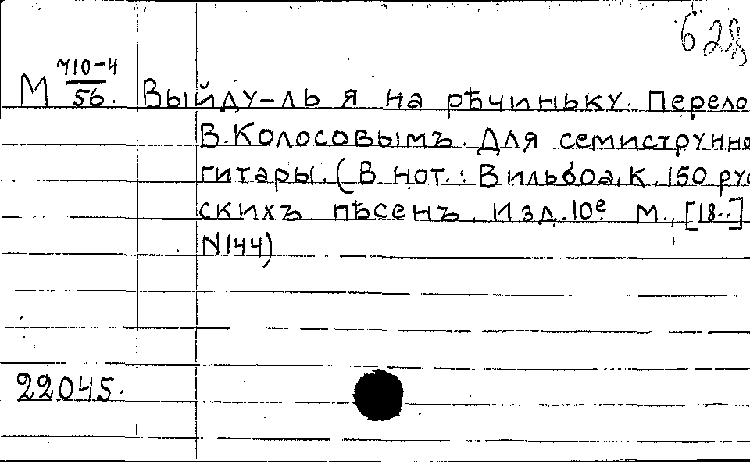 628
М 710-4/56. Выйду-ль я на рѣчиньку. Перело
В. Колосовымъ. Для семиструнно
гитары. (В нот.: Вильбоа, К. 150 рус
скихъ пѣсен. Изд. 10е М., [18..]
N144)
22045.